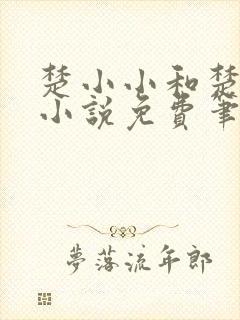 楚小小和楚
小說免費筆
夢落流年郎